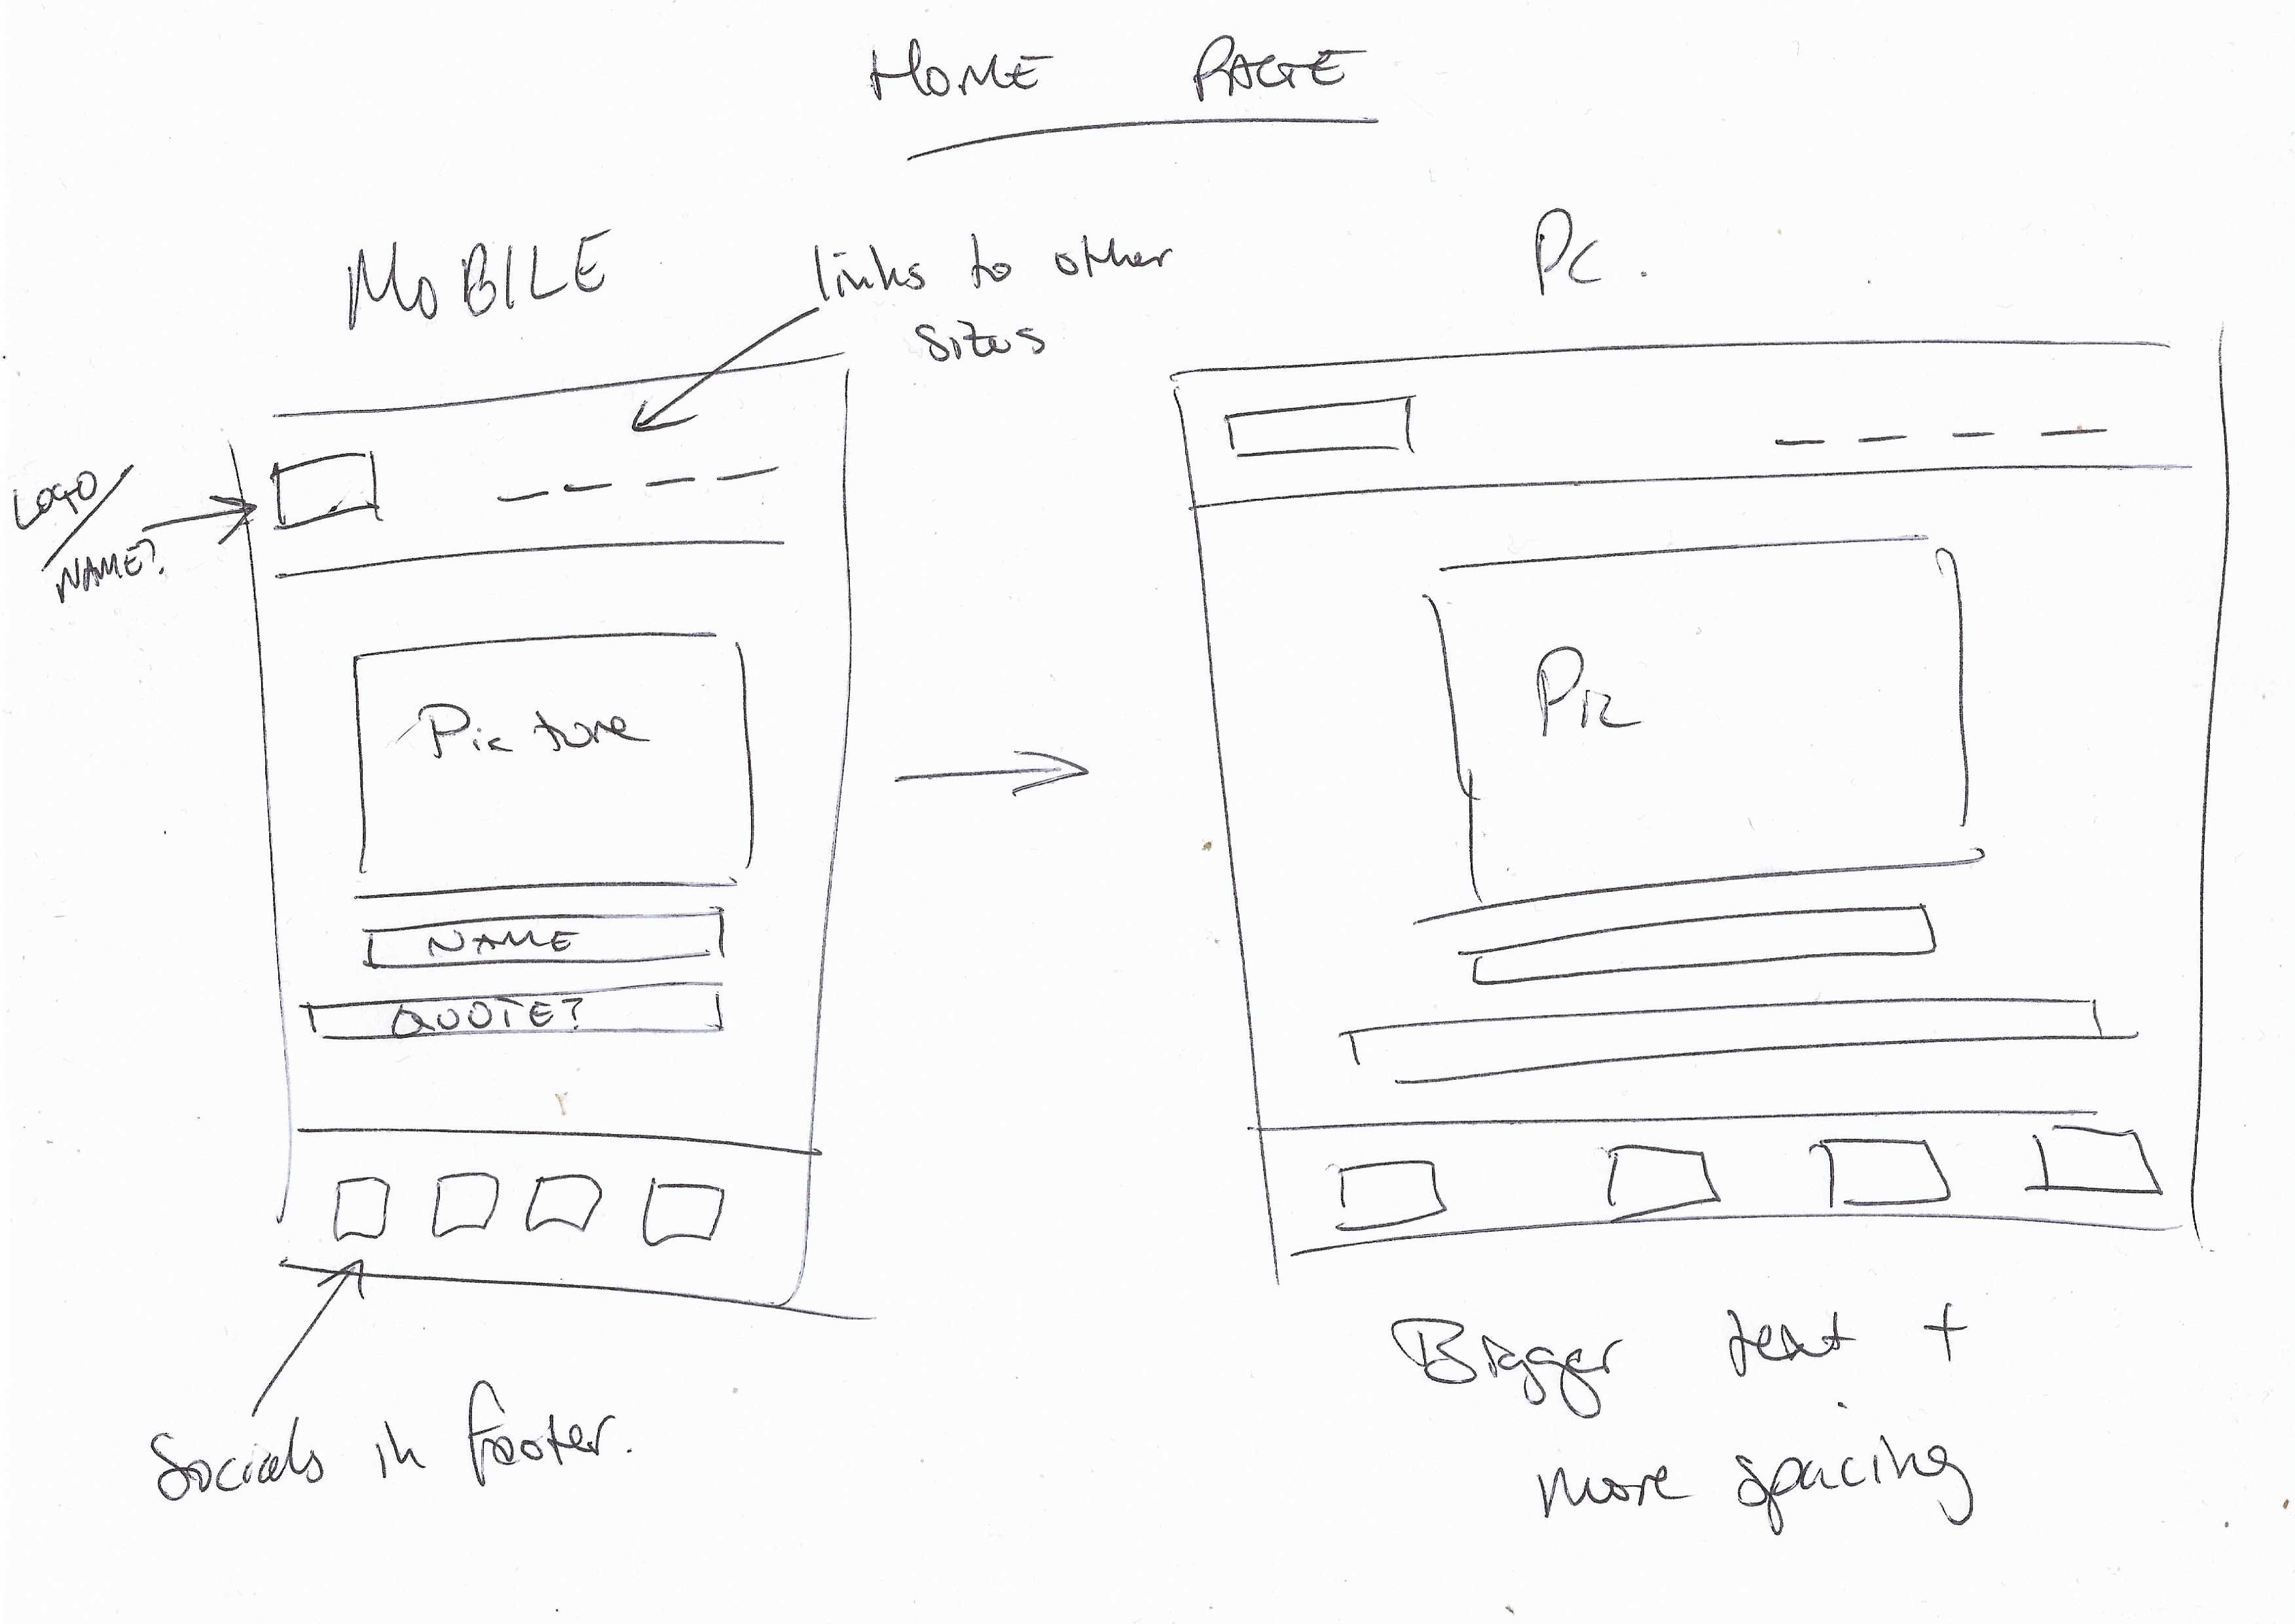 HOME PAGE
MOBILE
links to other
sizes
PC.
LOGO/
NAME?
Picture
Pic
NAME
QUOTE?
Socials in footer.
Bigger text +
more spacing